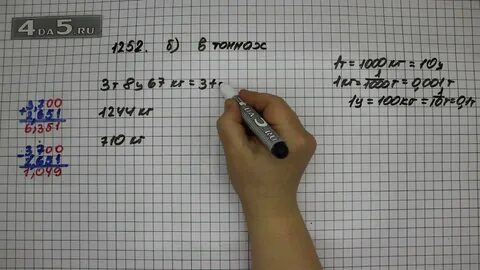 4DA5.RU
1252. б) в тоннах
3т 8ц 67 кг = 3т
1244 кг
710 кг
1т = 1000 кг = 10ц
1кг = 1/1000 т = 0,001т
1ц = 100кг = 1/10 т = 0,1т
+3,700
2,651
6,351
-3,700
2,651
1,049